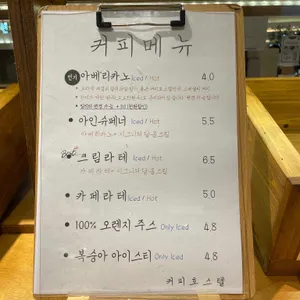 커피메뉴
인기 아메리카노 Iced / Hot 4.0
아인슈페너 Iced / Hot 5.5
아메리카노 + 시그니처 달콤크림
크림라떼 Iced / Hot 6.5
카페라떼 + 시그니처 달콤크림
카페라떼 Iced / Hot 5.0
100% 오렌지 주스 Only Iced 4.8
복숭아 아이스티 Only Iced 4.8
커피호스텔